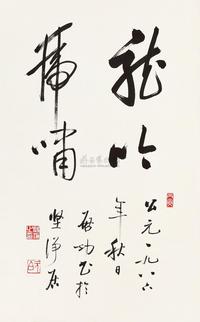 龙吟
虎啸
公元一九八六
年秋日
启功书于
坚净居